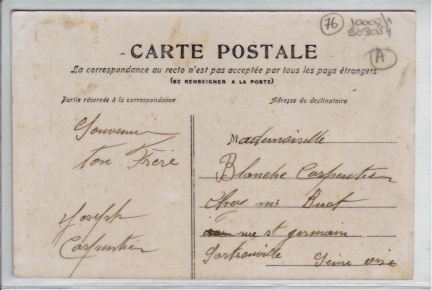 76
A
CARTE POSTALE
La correspondance au recto n'est pas acceptée par tous les pays étrangers
(SE RENSEIGNER A LA POSTE)
Partie réservée à la correspondance
Adresse du destinataire
Souvenir
ton Frère
Joseph
Carpentier
Mademoiselle
Blanche Carpentier
Chez mr Buat
rue st germain
Sartrouville Seine oise